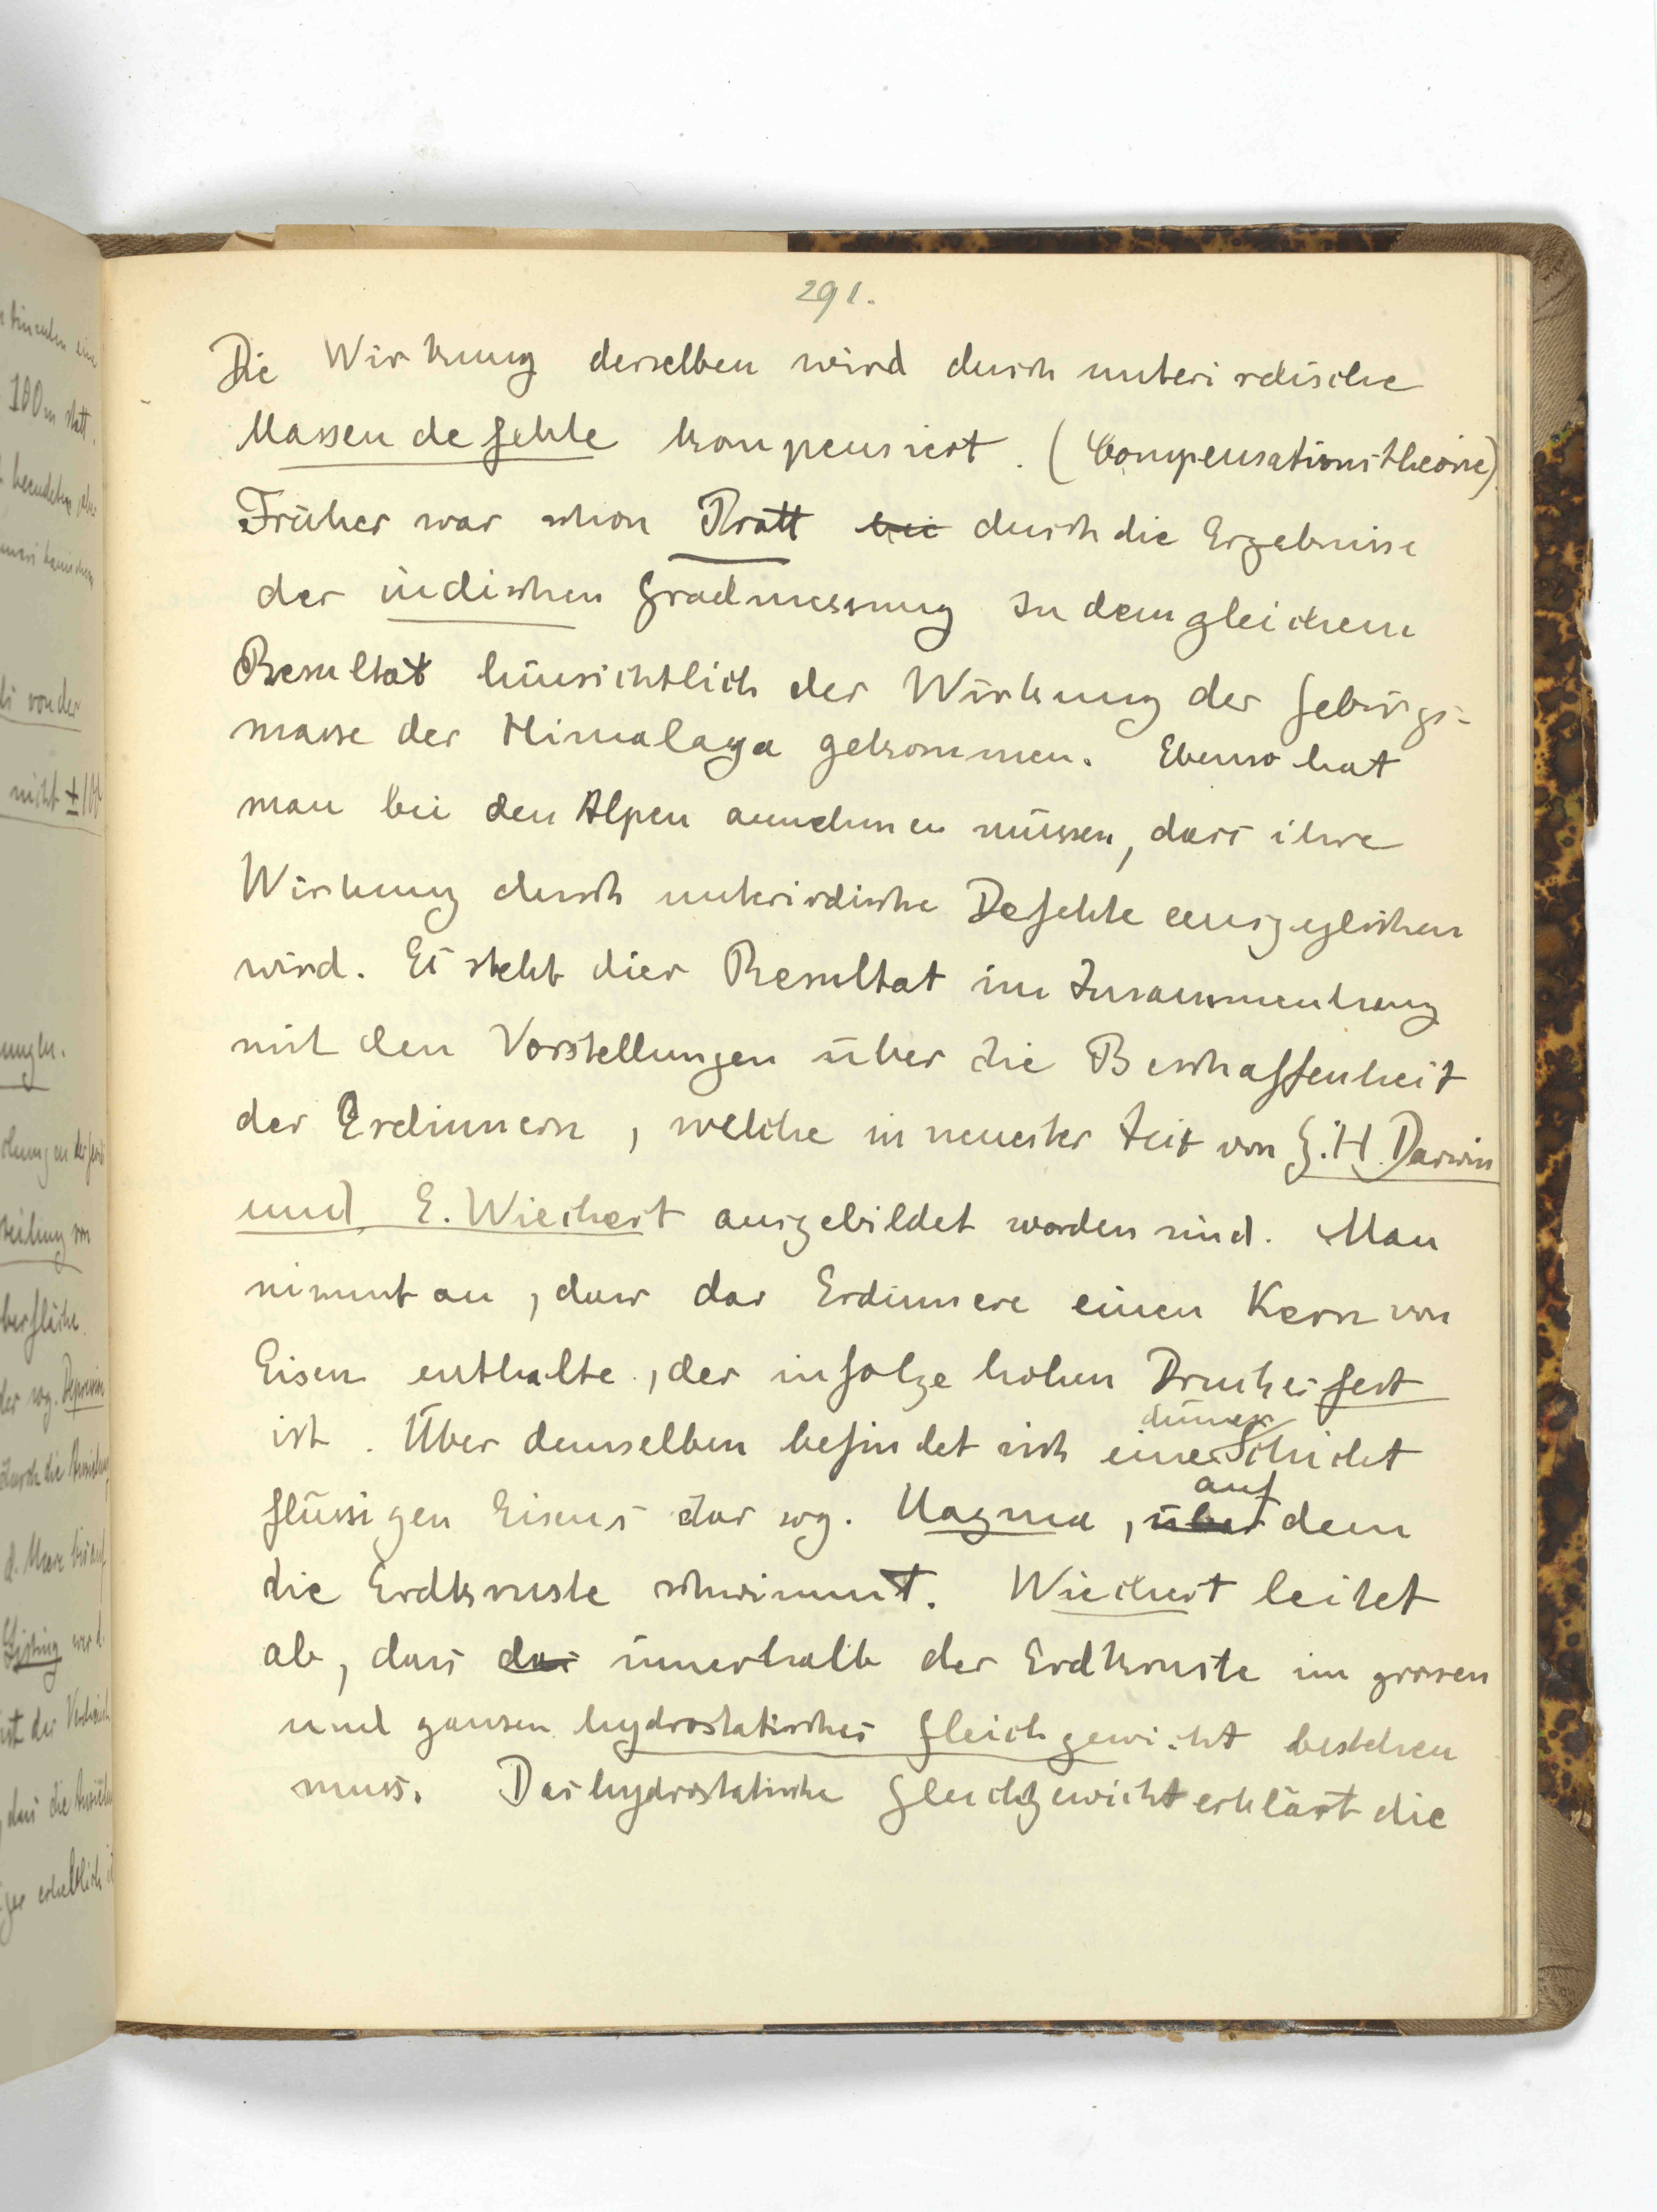 291.
Die Wirkung derselben wird durch unterirdische
Massendefekte kompensiert. (Compensationstheorie)
Früher war schon Pratt bei durch die Ergebnisse
der indischen Gradmessung zu dem gleichen
Resultat hinsichtlich der Wirkung der Gebirgs-
masse des Himalaya gekommen. Ebenso hat
man bei den Alpen annehmen müssen, dass ihre
Wirkung durch unterirdische Defekte ausgeglichen
wird. Es steht dies Resultat im Zusammenhang
mit den Vorstellungen über die Beschaffenheit
des Erdinnern, welche in neuester Zeit von G. H. Darwin
und E. Wiechert ausgebildet worden sind. Man
nimmt an, dass das Erdinnere einen Kern von
Eisen enthalte, der infolge hohen Druckes fest
ist. Über demselben befindet sich eine dünne Schicht
flüssigen Eisens das sog. Magma, über auf dem
die Erdkruste schwimmt. Wiechert leitet
ab, dass das innerhalb der Erdkruste im grossen
und ganzen hydrostatisches Gleichgewicht bestehen
muss. Das hydrostatische Gleichgewicht erklärt die
100 m statt.
von der
nicht ±
der sog. Depression
durch die
Listing
dass die
erheblich